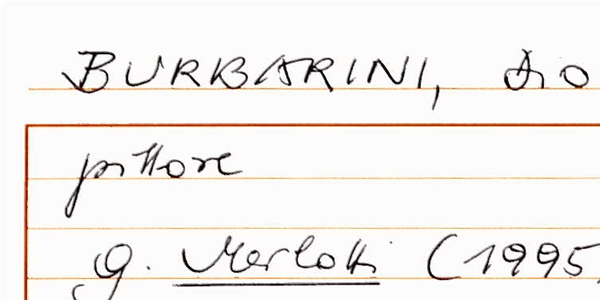 BURBARINI, Dio
pittore
G. Merlotti (1995,